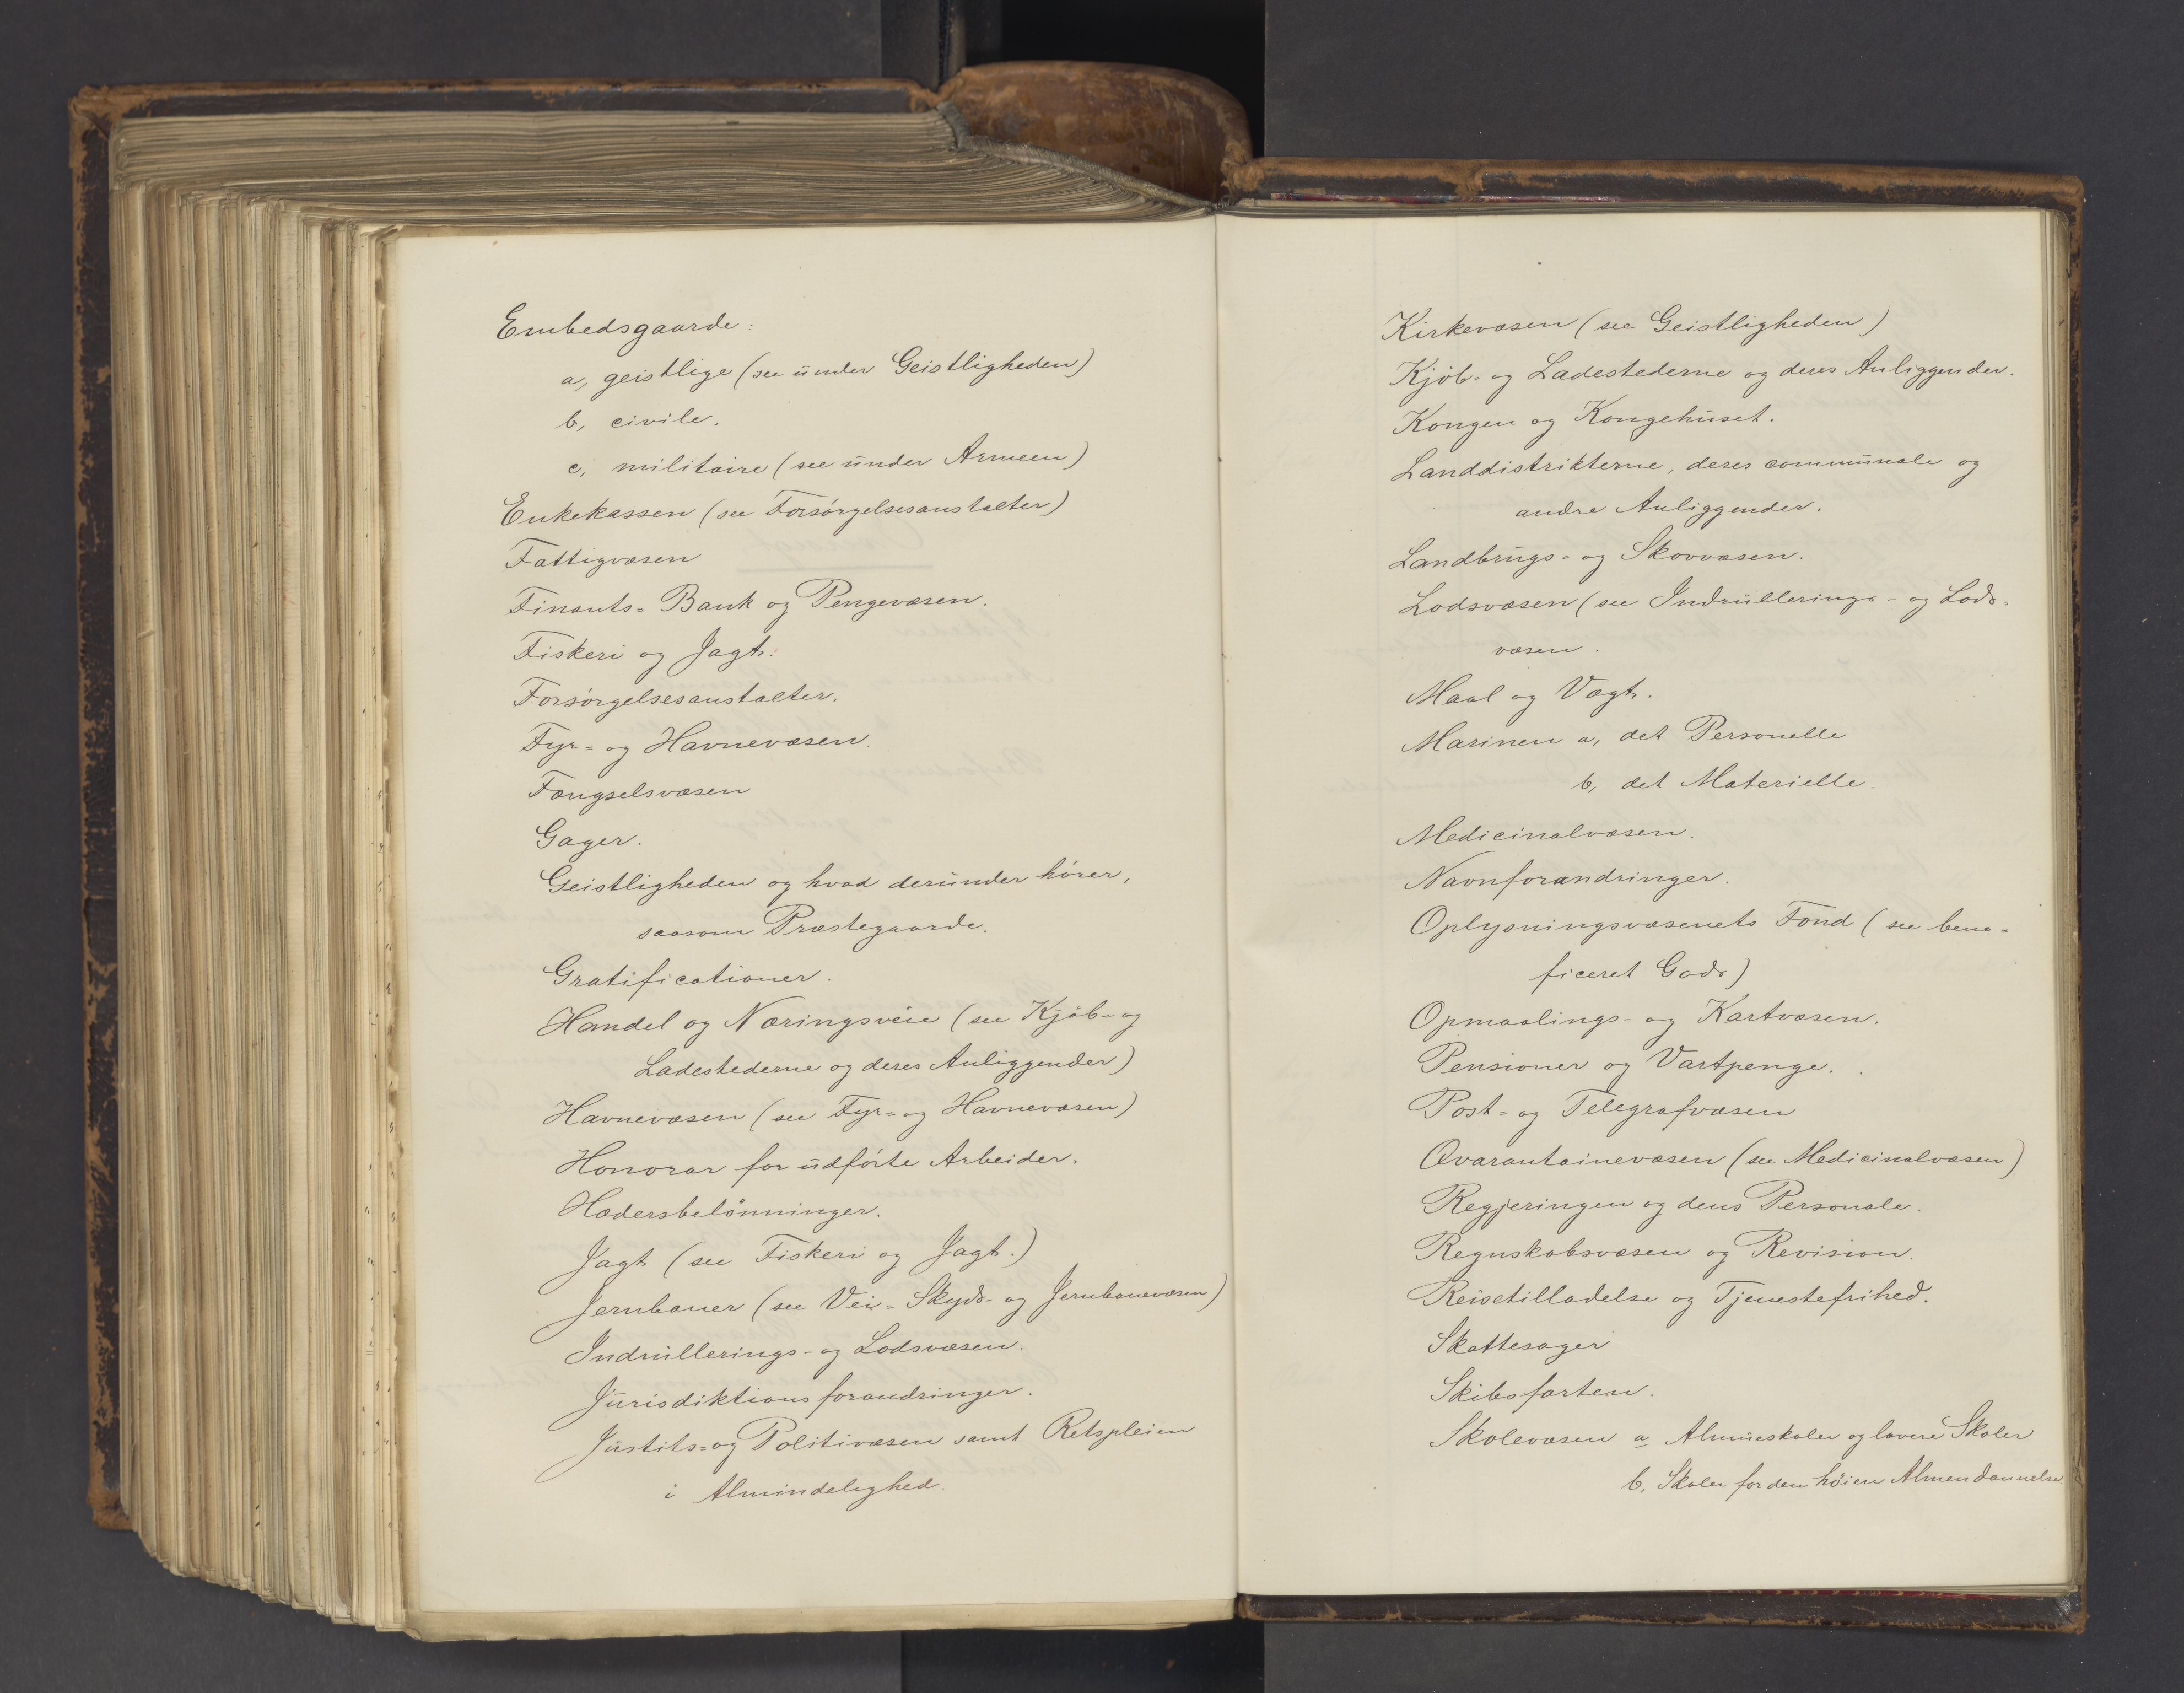 Embedsgaarde:
a, geistlige (see under Geistligheden)
b, civile.
c, militaire (see under Armeen)
Enkekassen (see Forsørgelsesanstalter)
Fattigvæsen
Finants- Bank og Pengevæsen.
Fiskeri og Jagt.
Forsørgelsesanstalter.
Fyr- og Havnevæsen.
Fængselsvæsen
Gager.
Geistligheden og hvad derunder hører,
saasom Præstegaarde.
Gratificationer.
Handel og Næringsveie (see Kjøb- og
Ladestederne og deres Anliggender)
Havnevæsen (see Fyr- og Havnevæsen)
Honorar for udførte Arbeider.
Hædersbelønninger.
Jagt (see Fiskeri og Jagt.)
Jernbaner (see Vei- Skyds- og Jernbanevæsen)
Indrullerings- og Lodsvæsen.
Jurisdiktionsforandringer.
Justits- og Politivæsen samt Retspleien
i Almindelighed.
Kirkevæsen (see Geistligheden)
Kjøb- og Ladestederne og deres Anliggender.
Kongen og Kongehuset.
Landdistrikterne, deres communale og
andre Anliggender.
Landbrugs- og Skovvæsen.
Lodsvæsen (see Indrullerings- og Lods-
væsen.
Maal og Vægt.
Marinen a, det Personelle
b, det Materielle.
Medicinalvæsen.
Navnforandringer.
Oplysningsvæsenets Fond (see bene-
ficeret Gods)
Opmaalings- og Kartvæsen.
Pensioner og Vartpenge.
Post- og Telegrafvæsen
Qvarantainevæsen (see Medicinalvæsen)
Regjeringen og dens Personale.
Regnskabsvæsen og Revision.
Reisetilladelse og Tjenestefrihed.
Skattesager
Skibsfarten.
Skolevæsen a Almueskoler og lavere Skoler
b, Skoler for den høiere Almendannelse